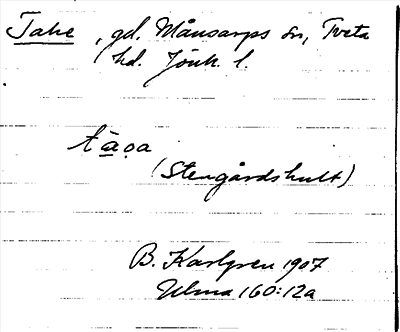 Tahe, gd. Månsarps sn, Tveta
hd. Jönk. l.
(Stengårdshult)
B. Karlgren 1907
Ulma 160:12a